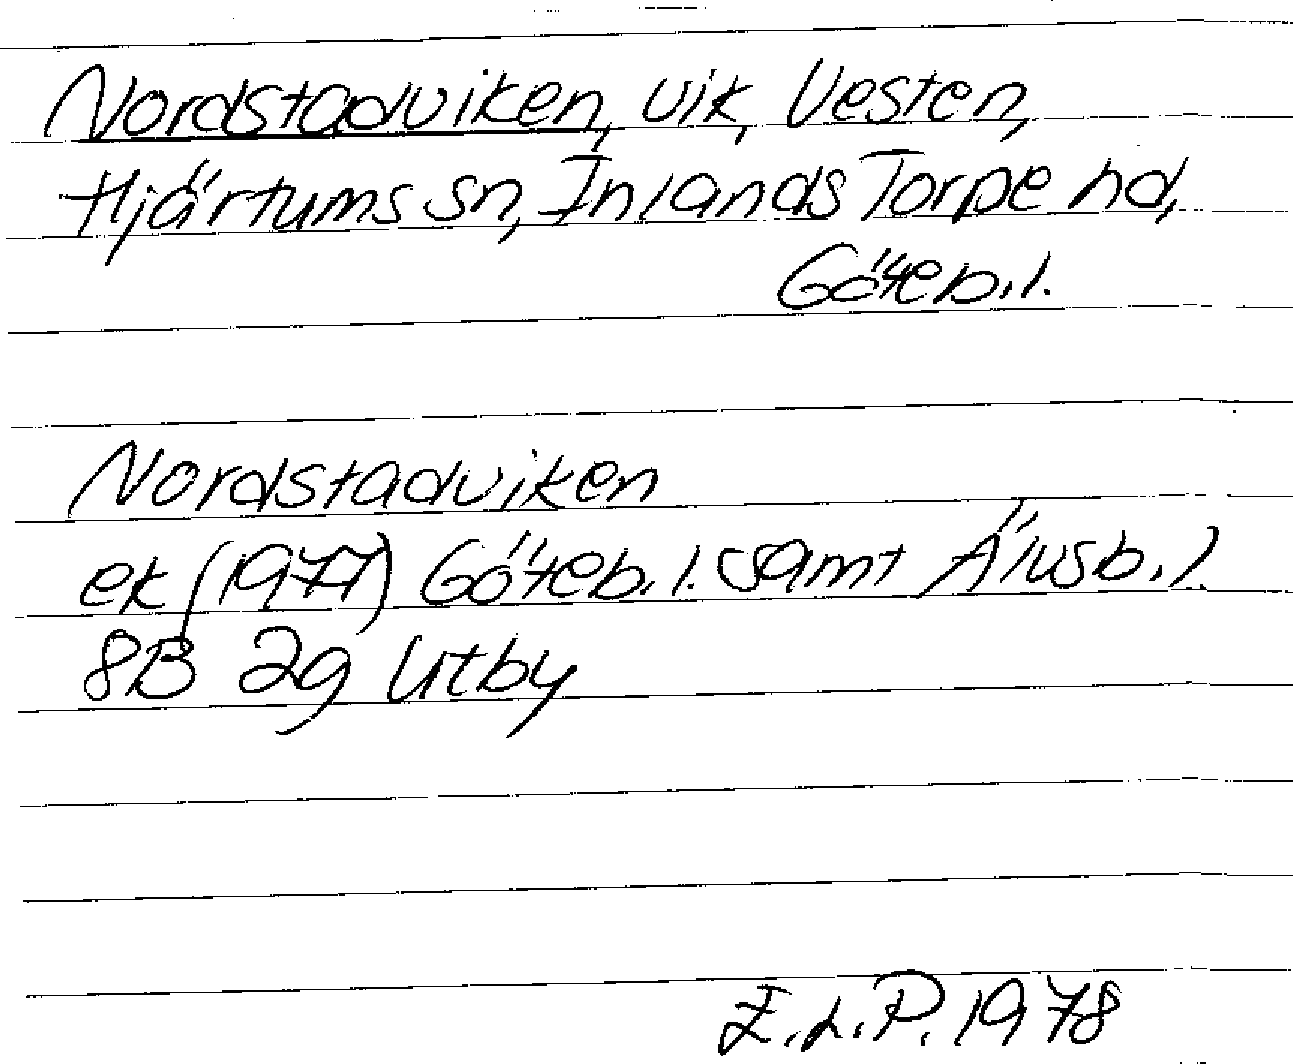 Nordstadviken, vik, Vesten,
Hjärtums sn, Inlands Torpe hd,
Göteb. l.
Nordstadviken
ek (1977) Göteb. l. samt Älvsb. l.
8B 2g Utby
E.L.P. 1978